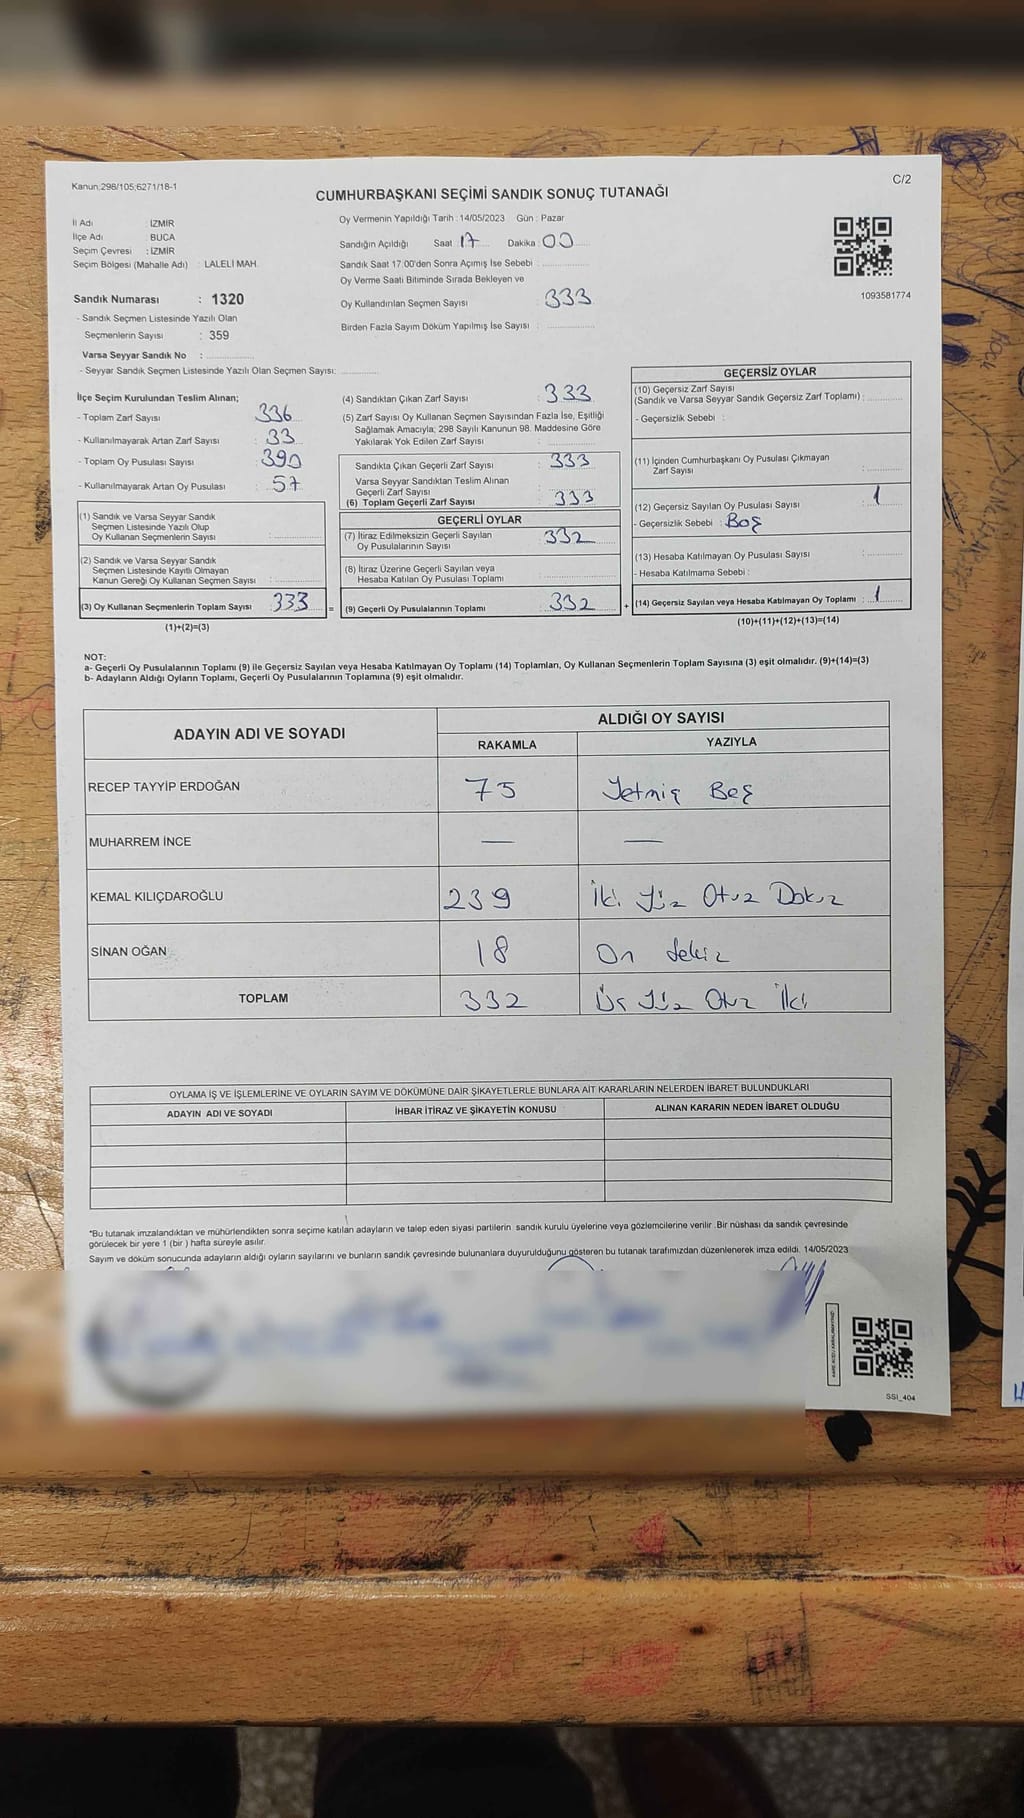 Kanun;298/105;6271/18-1
CUMHURBAŞKANI SEÇİMİ SANDIK SONUÇ TUTANAĞI
C/2
İl Adı : İZMİR
İlçe Adı : BUCA
Seçim Çevresi : İZMİR
Seçim Bölgesi (Mahalle Adı) : LALELİ MAH.
Sandık Numarası : 1320
- Sandık Seçmen Listesinde Yazılı Olan
Seçmenlerin Sayısı : 359
Varsa Seyyar Sandık No :
- Seyyar Sandık Seçmen Listesinde Yazılı Olan Seçmen Sayısı:
Oy Vermenin Yapıldığı Tarih : 14/05/2023 Gün : Pazar
Sandığın Açıldığı Saat 17 Dakika : 00
Sandık Saat 17:00'den Sonra Açımış İse Sebebi :
Oy Verme Saati Bitiminde Sırada Bekleyen ve
Oy Kullandırılan Seçmen Sayısı : 333
Birden Fazla Sayım Döküm Yapılmış İse Sayısı :
1093581774
İlçe Seçim Kurulundan Teslim Alınan;
- Toplam Zarf Sayısı : 336
- Kullanılmayarak Artan Zarf Sayısı : 33
- Toplam Oy Pusulası Sayısı : 390
- Kullanılmayarak Artan Oy Pusulası : 57
(1) Sandık ve Varsa Seyyar Sandık
Seçmen Listesinde Yazılı Olup
Oy Kullanan Seçmenlerin Sayısı :
(2) Sandık ve Varsa Seyyar Sandık
Seçmen Listesinde Kayıtlı Olmayan
Kanun Gereği Oy Kullanan Seçmen Sayısı :
(3) Oy Kullanan Seçmenlerin Toplam Sayısı : 333
=
(1)+(2)=(3)
(4) Sandıktan Çıkan Zarf Sayısı : 333
(5) Zarf Sayısı Oy Kullanan Seçmen Sayısından Fazla İse, Eşitliği
Sağlamak Amacıyla; 298 Sayılı Kanunun 98. Maddesine Göre
Yakılarak Yok Edilen Zarf Sayısı :
Sandıkta Çıkan Geçerli Zarf Sayısı : 333
Varsa Seyyar Sandıktan Teslim Alınan
Geçerli Zarf Sayısı :
(6) Toplam Geçerli Zarf Sayısı : 333
GEÇERLİ OYLAR
(7) İtiraz Edilmeksizin Geçerli Sayılan
Oy Pusulalarının Sayısı : 332
(8) İtiraz Üzerine Geçerli Sayılan veya
Hesaba Katılan Oy Pusulası Toplamı :
(9) Geçerli Oy Pusulalarının Toplamı : 332
+
GEÇERSİZ OYLAR
(10) Geçersiz Zarf Sayısı
(Sandık ve Varsa Seyyar Sandık Geçersiz Zarf Toplamı) :
- Geçersizlik Sebebi :
(11) İçinden Cumhurbaşkanı Oy Pusulası Çıkmayan
Zarf Sayısı :
(12) Geçersiz Sayılan Oy Pusulası Sayısı : 1
- Geçersizlik Sebebi : Boş
(13) Hesaba Katılmayan Oy Pusulası Sayısı :
- Hesaba Katılmama Sebebi :
(14) Geçersiz Sayılan veya Hesaba Katılmayan Oy Toplamı : 1
(10)+(11)+(12)+(13)=(14)
NOT:
a- Geçerli Oy Pusulalarının Toplamı (9) ile Geçersiz Sayılan veya Hesaba Katılmayan Oy Toplamı (14) Toplamları, Oy Kullanan Seçmenlerin Toplam Sayısına (3) eşit olmalıdır. (9)+(14)=(3)
b- Adayların Aldığı Oyların Toplamı, Geçerli Oy Pusulalarının Toplamına (9) eşit olmalıdır.
ADAYIN ADI VE SOYADI
ALDIĞI OY SAYISI
RAKAMLA YAZIYLA
RECEP TAYYİP ERDOĞAN 75 Yetmiş Beş
MUHARREM İNCE — —
KEMAL KILIÇDAROĞLU 239 İki Yüz Otuz Dokuz
SİNAN OĞAN 18 On Sekiz
TOPLAM 332 Üç Yüz Otuz İki
OYLAMA İŞ VE İŞLEMLERİNE VE OYLARIN SAYIM VE DÖKÜMÜNE DAİR ŞİKAYETLERLE BUNLARA AİT KARARLARIN NELERDEN İBARET BULUNDUKLARI
ADAYIN ADI VE SOYADI İHBAR İTİRAZ VE ŞİKAYETİN KONUSU ALINAN KARARIN NEDEN İBARET OLDUĞU
*Bu tutanak imzalandıktan ve mühürlendikten sonra seçime katılan adayların ve talep eden siyasi partilerin sandık kurulu üyelerine veya gözlemcilerine verilir. Bir nüshası da sandık çevresinde
görülecek bir yere 1 (bir ) hafta süreyle asılır.
Sayım ve döküm sonucunda adayların aldığı oyların sayılarını ve bunların sandık çevresinde bulunanlara duyurulduğunu gösteren bu tutanak tarafımızdan düzenlenerek imza edildi. 14/05/2023
SSI_404